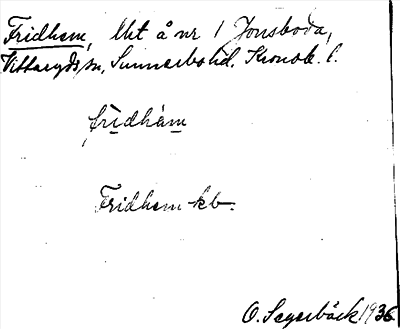 Fridhem, lht å nr 1 Jonsboda,
Vittaryds sn, Sunnerbo hd, Kronob. l.
frìdhàm
Fridhem kb.
O. Segerbäck 1936